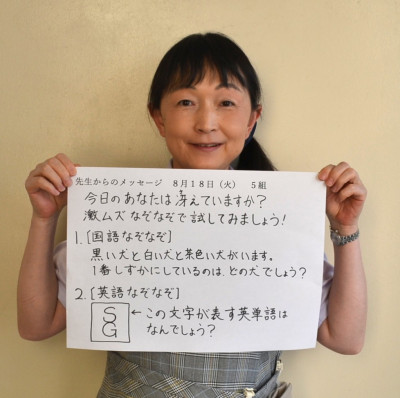 先生からのメッセージ 8月18日(火) 5組
今日のあなたは冴えていますか?
激ムズなぞなぞで試してみましょう!
1.[国語なぞなぞ]
黒い犬と白い犬と茶色い犬がいます。
1番しずかにしているのは、どの犬でしょう?
2.[英語なぞなぞ]
S
G
←この文字が表す英単語は
なんでしょう?